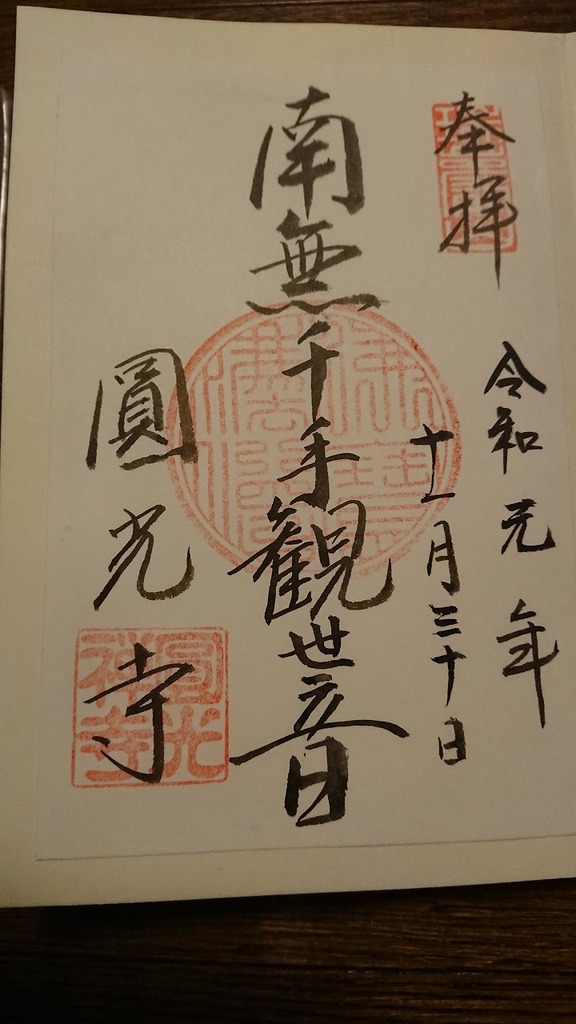 奉拝
令和元年
十一月三十日
南無千手観世音
圓光寺
圓光禅寺
佛法僧寶